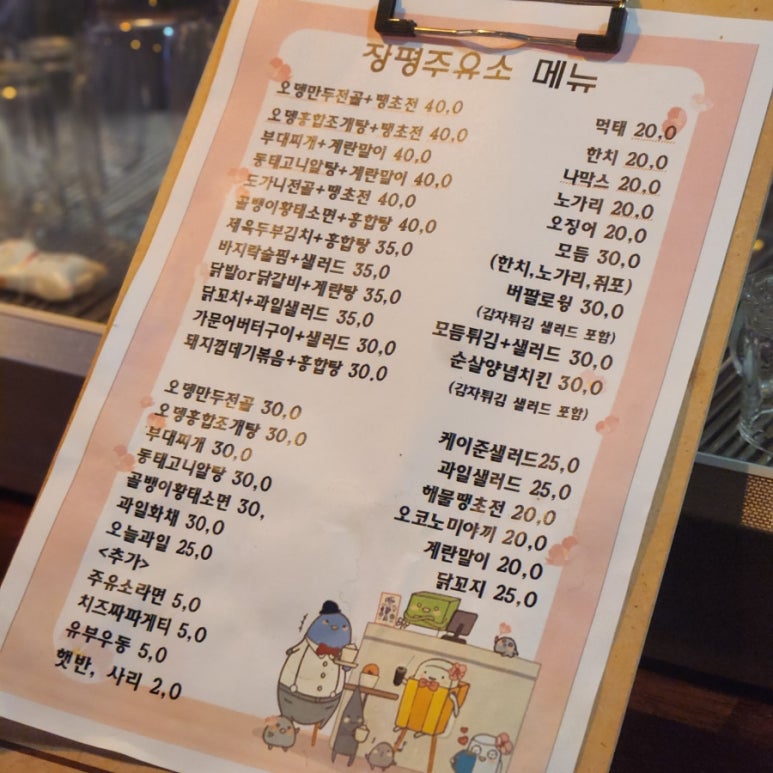 장평주유소 메뉴
오뎅만두전골+땡초전 40,0
오뎅홍합조개탕+땡초전 40,0
부대찌개+계란말이 40,0
동태고니알탕+계란말이 40,0
도가니전골+땡초전 40,0
골뱅이황태소면+홍합탕 40,0
제육두부김치+홍합탕 35,0
바지락술찜+샐러드 35,0
닭발or닭갈비+계란탕 35,0
닭꼬치+과일샐러드 35,0
가문어버터구이+샐러드 30,0
돼지껍데기볶음+홍합탕 30,0
오뎅만두전골 30,0
오뎅홍합조개탕 30,0
부대찌개 30,0
동태고니알탕 30,0
골뱅이황태소면 30,
과일화채 30,0
오늘과일 25,0
<추가>
주유소라면 5,0
치즈짜파게티 5,0
유부우동 5,0
햇반, 사리 2,0
먹태 20,0
한치 20,0
나막스 20,0
노가리 20,0
오징어 20,0
모듬 30,0
(한치,노가리,쥐포)
버팔로윙 30,0
(감자튀김 샐러드 포함)
모듬튀김+샐러드 30,0
순살양념치킨 30,0
(감자튀김 샐러드 포함)
케이준샐러드25,0
과일샐러드 25,0
해물땡초전 20,0
오코노미야끼 20,0
계란말이 20,0
닭꼬지 25,0